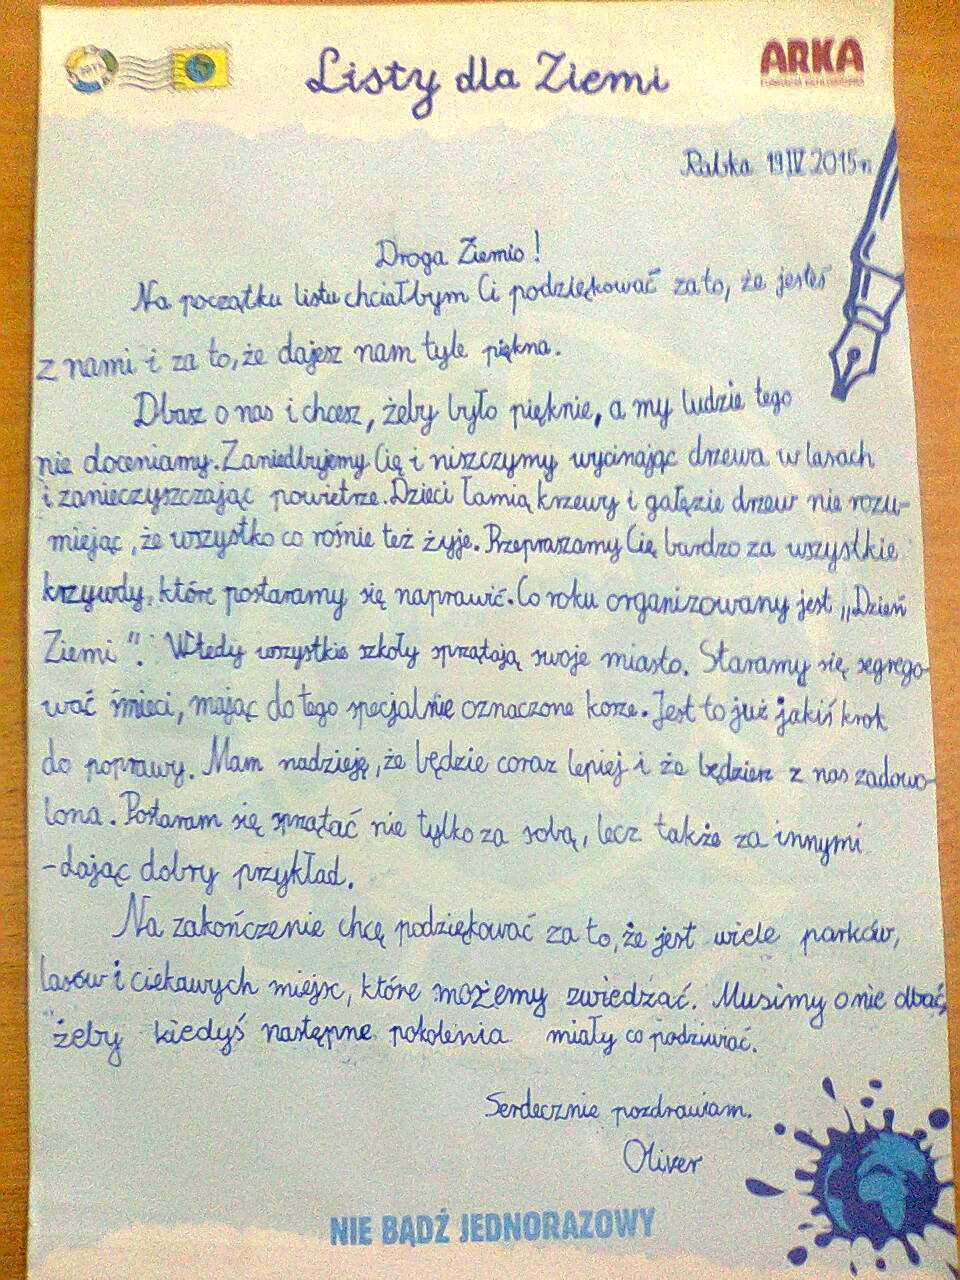 Listy dla Ziemi
ARKA
Rabka 19 IV 2015r.
Droga Ziemio!
Na początku listu chciałbym Ci podziękować za to, że jesteś
z nami i za to, że dajesz nam tyle piękna.
Dbasz o nas i chcesz, żeby było pięknie, a my ludzie tego
nie doceniamy. Zaniedbujemy Cię i niszczymy wycinając drzewa w lasach
i zanieczyszczając powietrze. Dzieci łamią krzewy i gałęzie drzew nie rozu-
miejąc, że wszystko co rośnie też żyje. Przepraszamy Cię bardzo za wszystkie
krzywdy, które postaramy się naprawić. Co roku organizowany jest „Dzień
Ziemi”. Wtedy wszystkie szkoły sprzątają swoje miasto. Staramy się segrego-
wać śmieci, mając do tego specjalnie oznaczone kosze. Jest to już jakiś krok
do poprawy. Mam nadzieję, że będzie coraz lepiej i że będziesz z nas zadowo-
lona. Postaram się sprzątać nie tylko za sobą, lecz także za innymi
-dając dobry przykład.
Na zakończenie chcę podziękować za to, że jest wiele parków,
lasów i ciekawych miejsc, które możemy zwiedzać. Musimy o nie dbać,
żeby kiedyś następne pokolenia miały co podziwiać.
Serdecznie pozdrawiam.
Oliver
NIE BĄDŹ JEDNORAZOWY